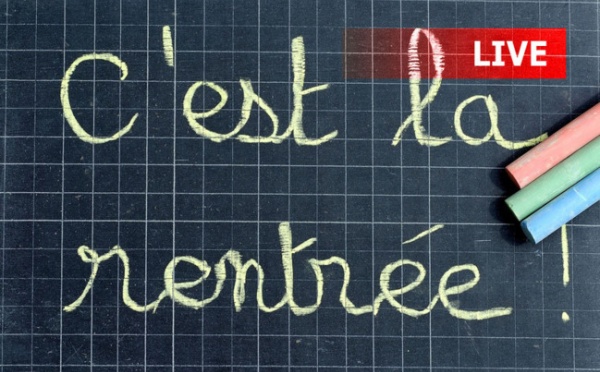 C'est la
LIVE
rentrée !